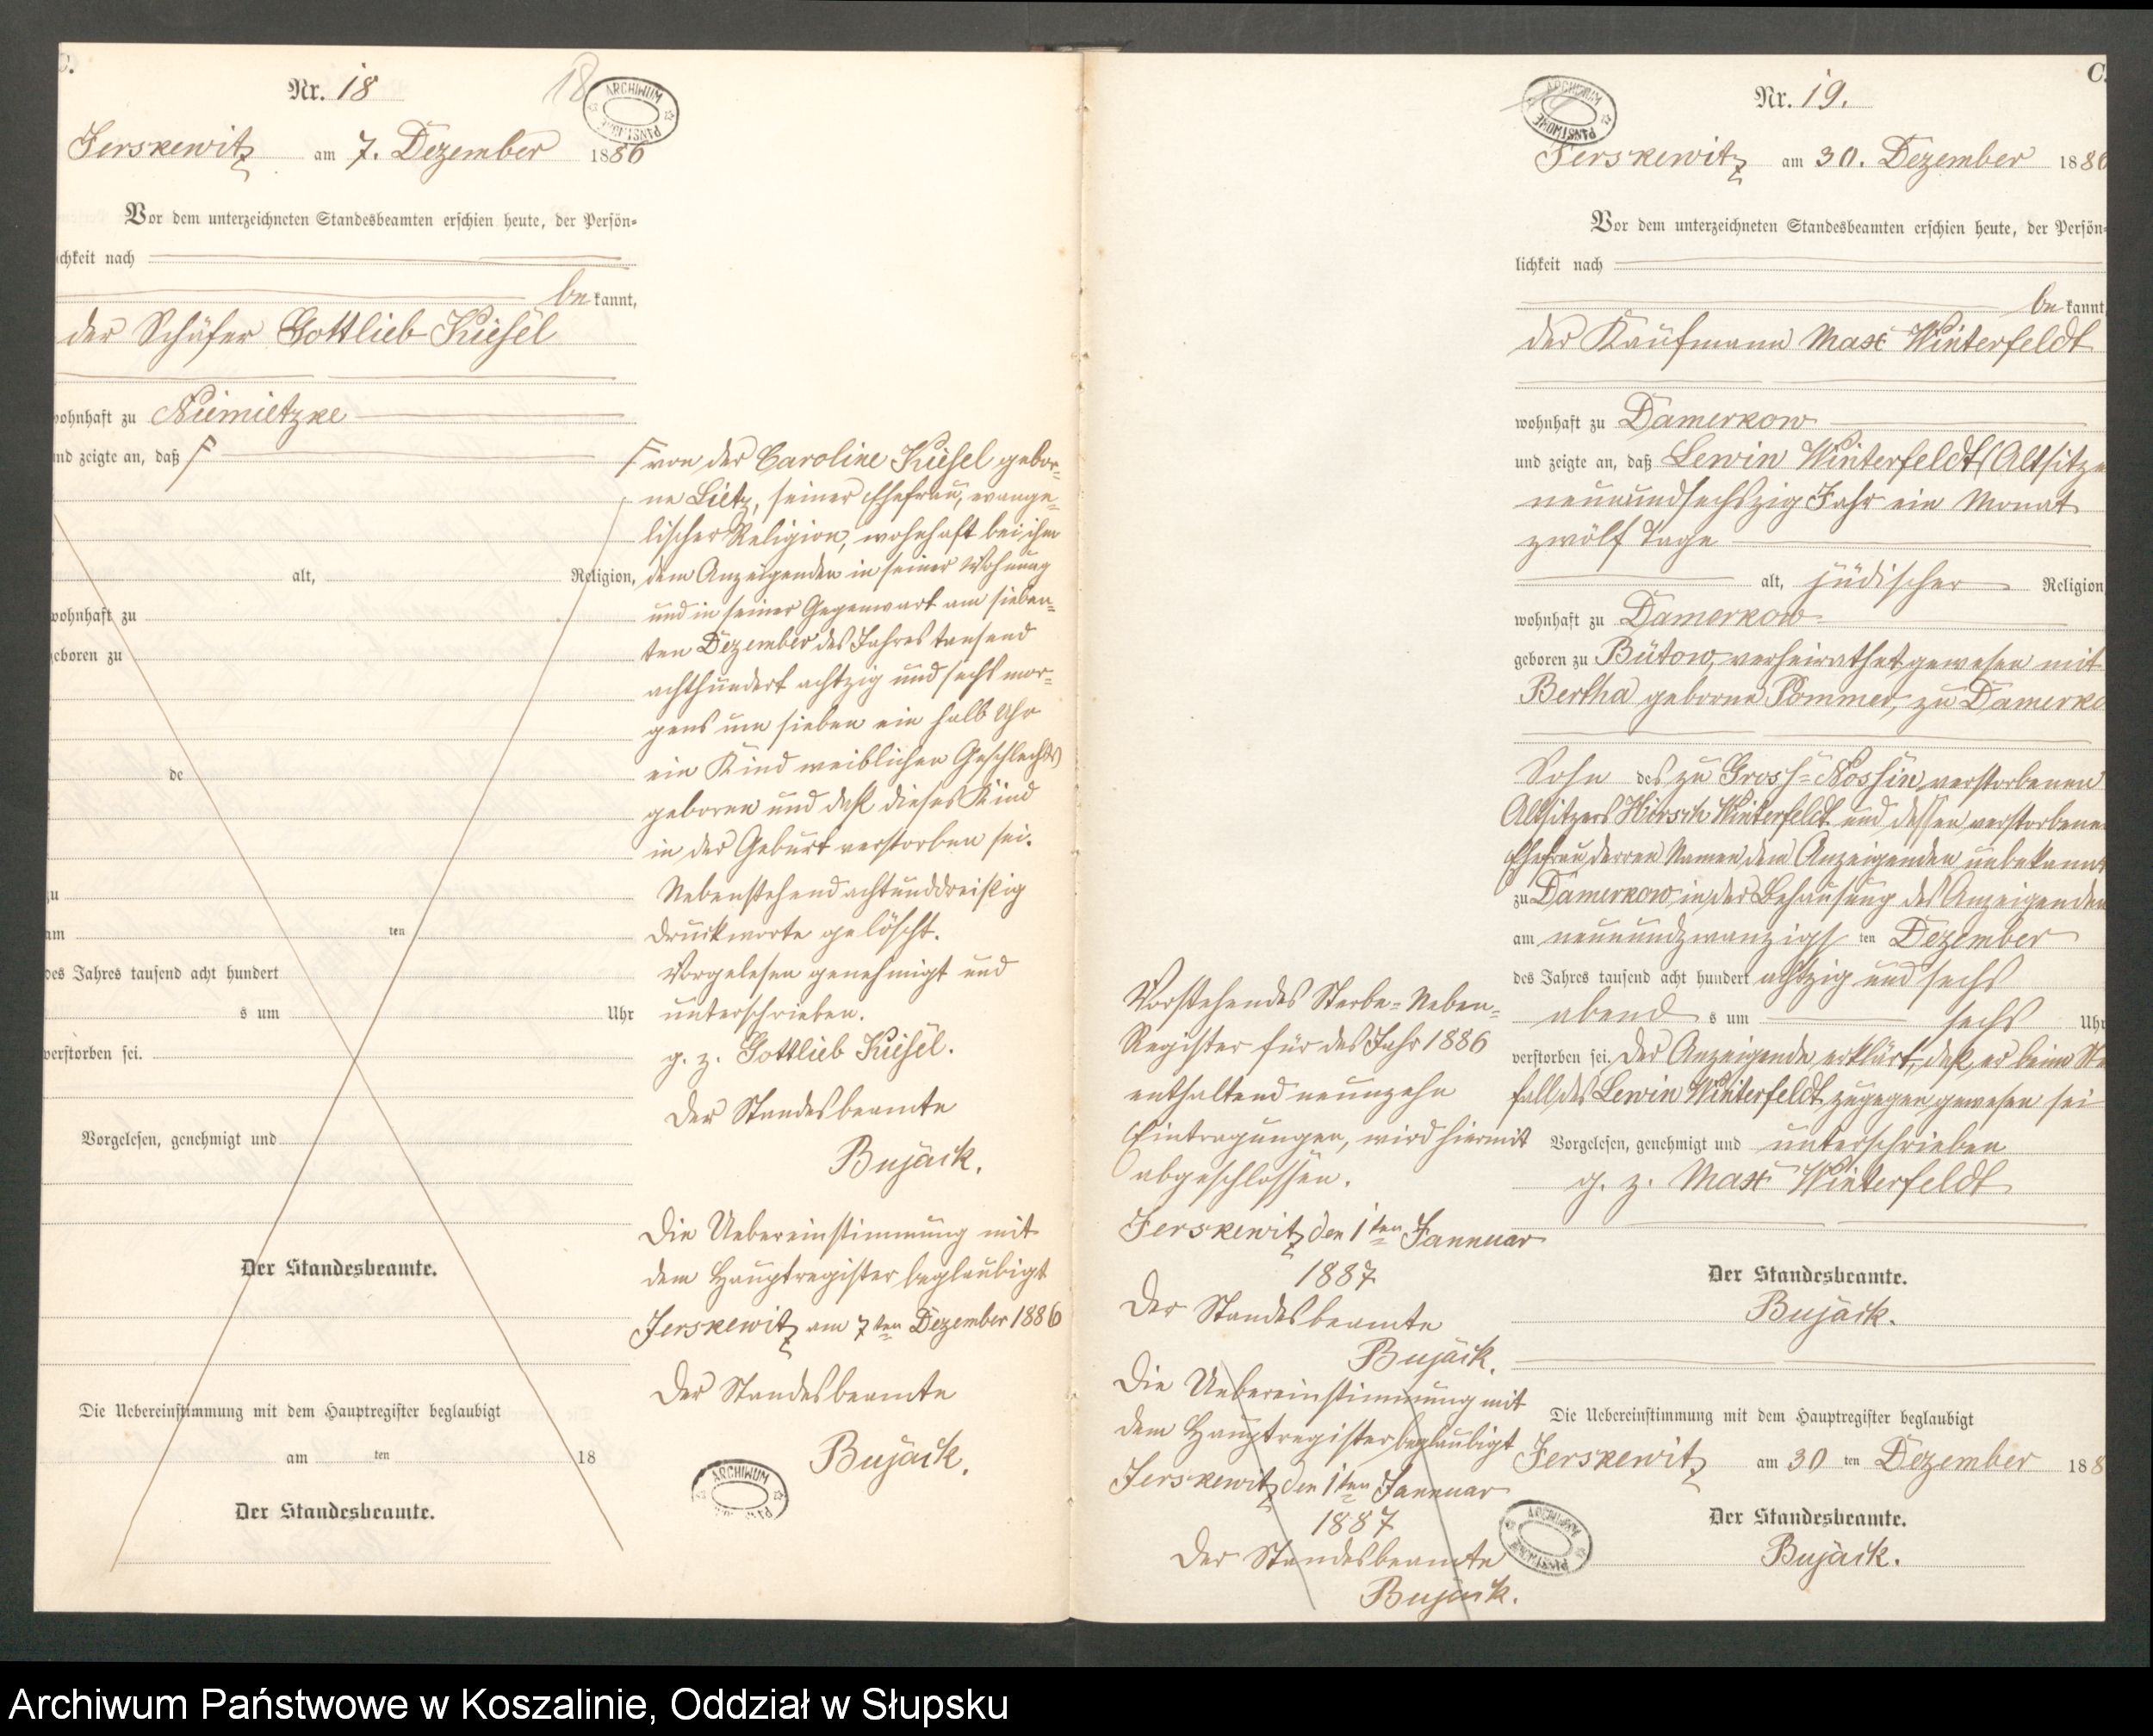 C.
Nr. 18
18
ARCHIWUM PAŃSTWOWE
Jerskewitz am 7. Dezember 1886
Vor dem unterzeichneten Standesbeamten erschien heute, der Persön-
lichkeit nach
be kannt,
der Schäfer Gottlieb Kiesel
wohnhaft zu Niemietzke
und zeigte an, daß F
alt, Religion,
wohnhaft zu
geboren zu
de
zu
am ten
des Jahres tausend acht hundert
s um Uhr
verstorben sei.
Vorgelesen, genehmigt und
Der Standesbeamte.
Die Uebereinstimmung mit dem Hauptregister beglaubigt
am ten 18
Der Standesbeamte.
F von der Caroline Kiesel gebor-
ne Lietz, seiner Ehefrau, evange-
lischer Religion, wohnhaft bei ihm
dem Anzeigenden in seiner Wohnung
und in seiner Gegenwart am sieben-
ten Dezember des Jahres tausend
achthundert achtzig und sechs mor-
gens um sieben ein halb Uhr
ein Kind weiblichen Geschlechts
geboren und daß dieses Kind
in der Geburt verstorben sei.
Nebenstehend achtunddreißig
Druckworte gelöscht.
Vorgelesen genehmigt und
unterschrieben.
g. z. Gottlieb Kiesel.
Der Standesbeamte
Bujack.
Die Uebereinstimmung mit
dem Hauptregister beglaubigt
Jerskewitz am 7ten Dezember 1886
Der Standesbeamte
Bujack.
ARCHIWUM
C.
Nr. 19.
ARCHIWUM PAŃSTWOWE
Jerskewitz am 30. Dezember 1886
Vor dem unterzeichneten Standesbeamten erschien heute, der Persön-
lichkeit nach
be kannt
der Kaufmann Max Winterfeldt
wohnhaft zu Damerkow
und zeigte an, daß Lewin Winterfeldt, Altsitze
neunundsechszig Jahr ein Monat
zwölf Tage
alt, jüdischer Religion
wohnhaft zu Damerkow
geboren zu Bütow, verheirathet gewesen mit
Bertha geborne Pommer, zu Damerko
Sohn des zu Gross-Nossin verstorbenen
Altsitzers Hirsch Winterfeldt und dessen verstorbene
Ehefrau, derren Namen, dem Anzeigenden unbekannt
zu Damerkow, in der Behausung des Anzeigenden
am neunundzwanzigs ten Dezember
des Jahres tausend acht hundert achtzig und sechs
abend s um sechs Uhr
verstorben sei. Der Anzeigende erklärt, daß er beim Ste
fall des Lewin Winterfeldt zugegen gewesen sei
Vorgelesen, genehmigt und unterschrieben
g. z. Max Winterfeldt
Der Standesbeamte.
Bujack.
Die Uebereinstimmung mit dem Hauptregister beglaubigt
Jerskewitz am 30 ten Dezember 188
Der Standesbeamte.
Bujack.
Vorstehendes Sterbe-Neben-
Register für das Jahr 1886
enthaltend neunzehn
Eintragungen, wird hiermit
abgeschlossen.
Jerskewitz den 1ten Jannuar
1887
Der Standesbeamte
Bujack.
Die Uebereinstimmung mit
dem Hauptregister beglaubigt
Jerskewitz den 1ten Jannuar
1887
Der Standesbeamte
Bujack.
ARCHIWUM PAŃSTWOWE
Archiwum Państwowe w Koszalinie, Oddział w Słupsku